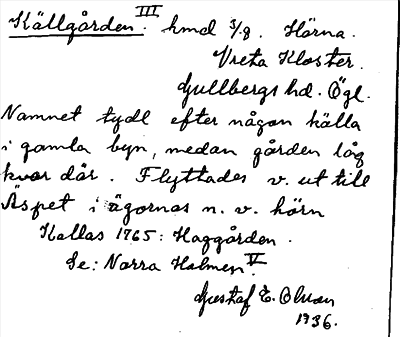 Källgården. III hmd 3/8. Hörna.
Vreta Kloster.
Gullbergs hd. Ögl.
Namnet tydl efter någon källa
i gamla byn, medan gården låg
kvar där. Flyttades v. ut till
Äspet i ägornas n. v. hörn
Kallas 1765: Haggården.
Se: Norra Holmen V.
Gustaf E. Olsson
1936.